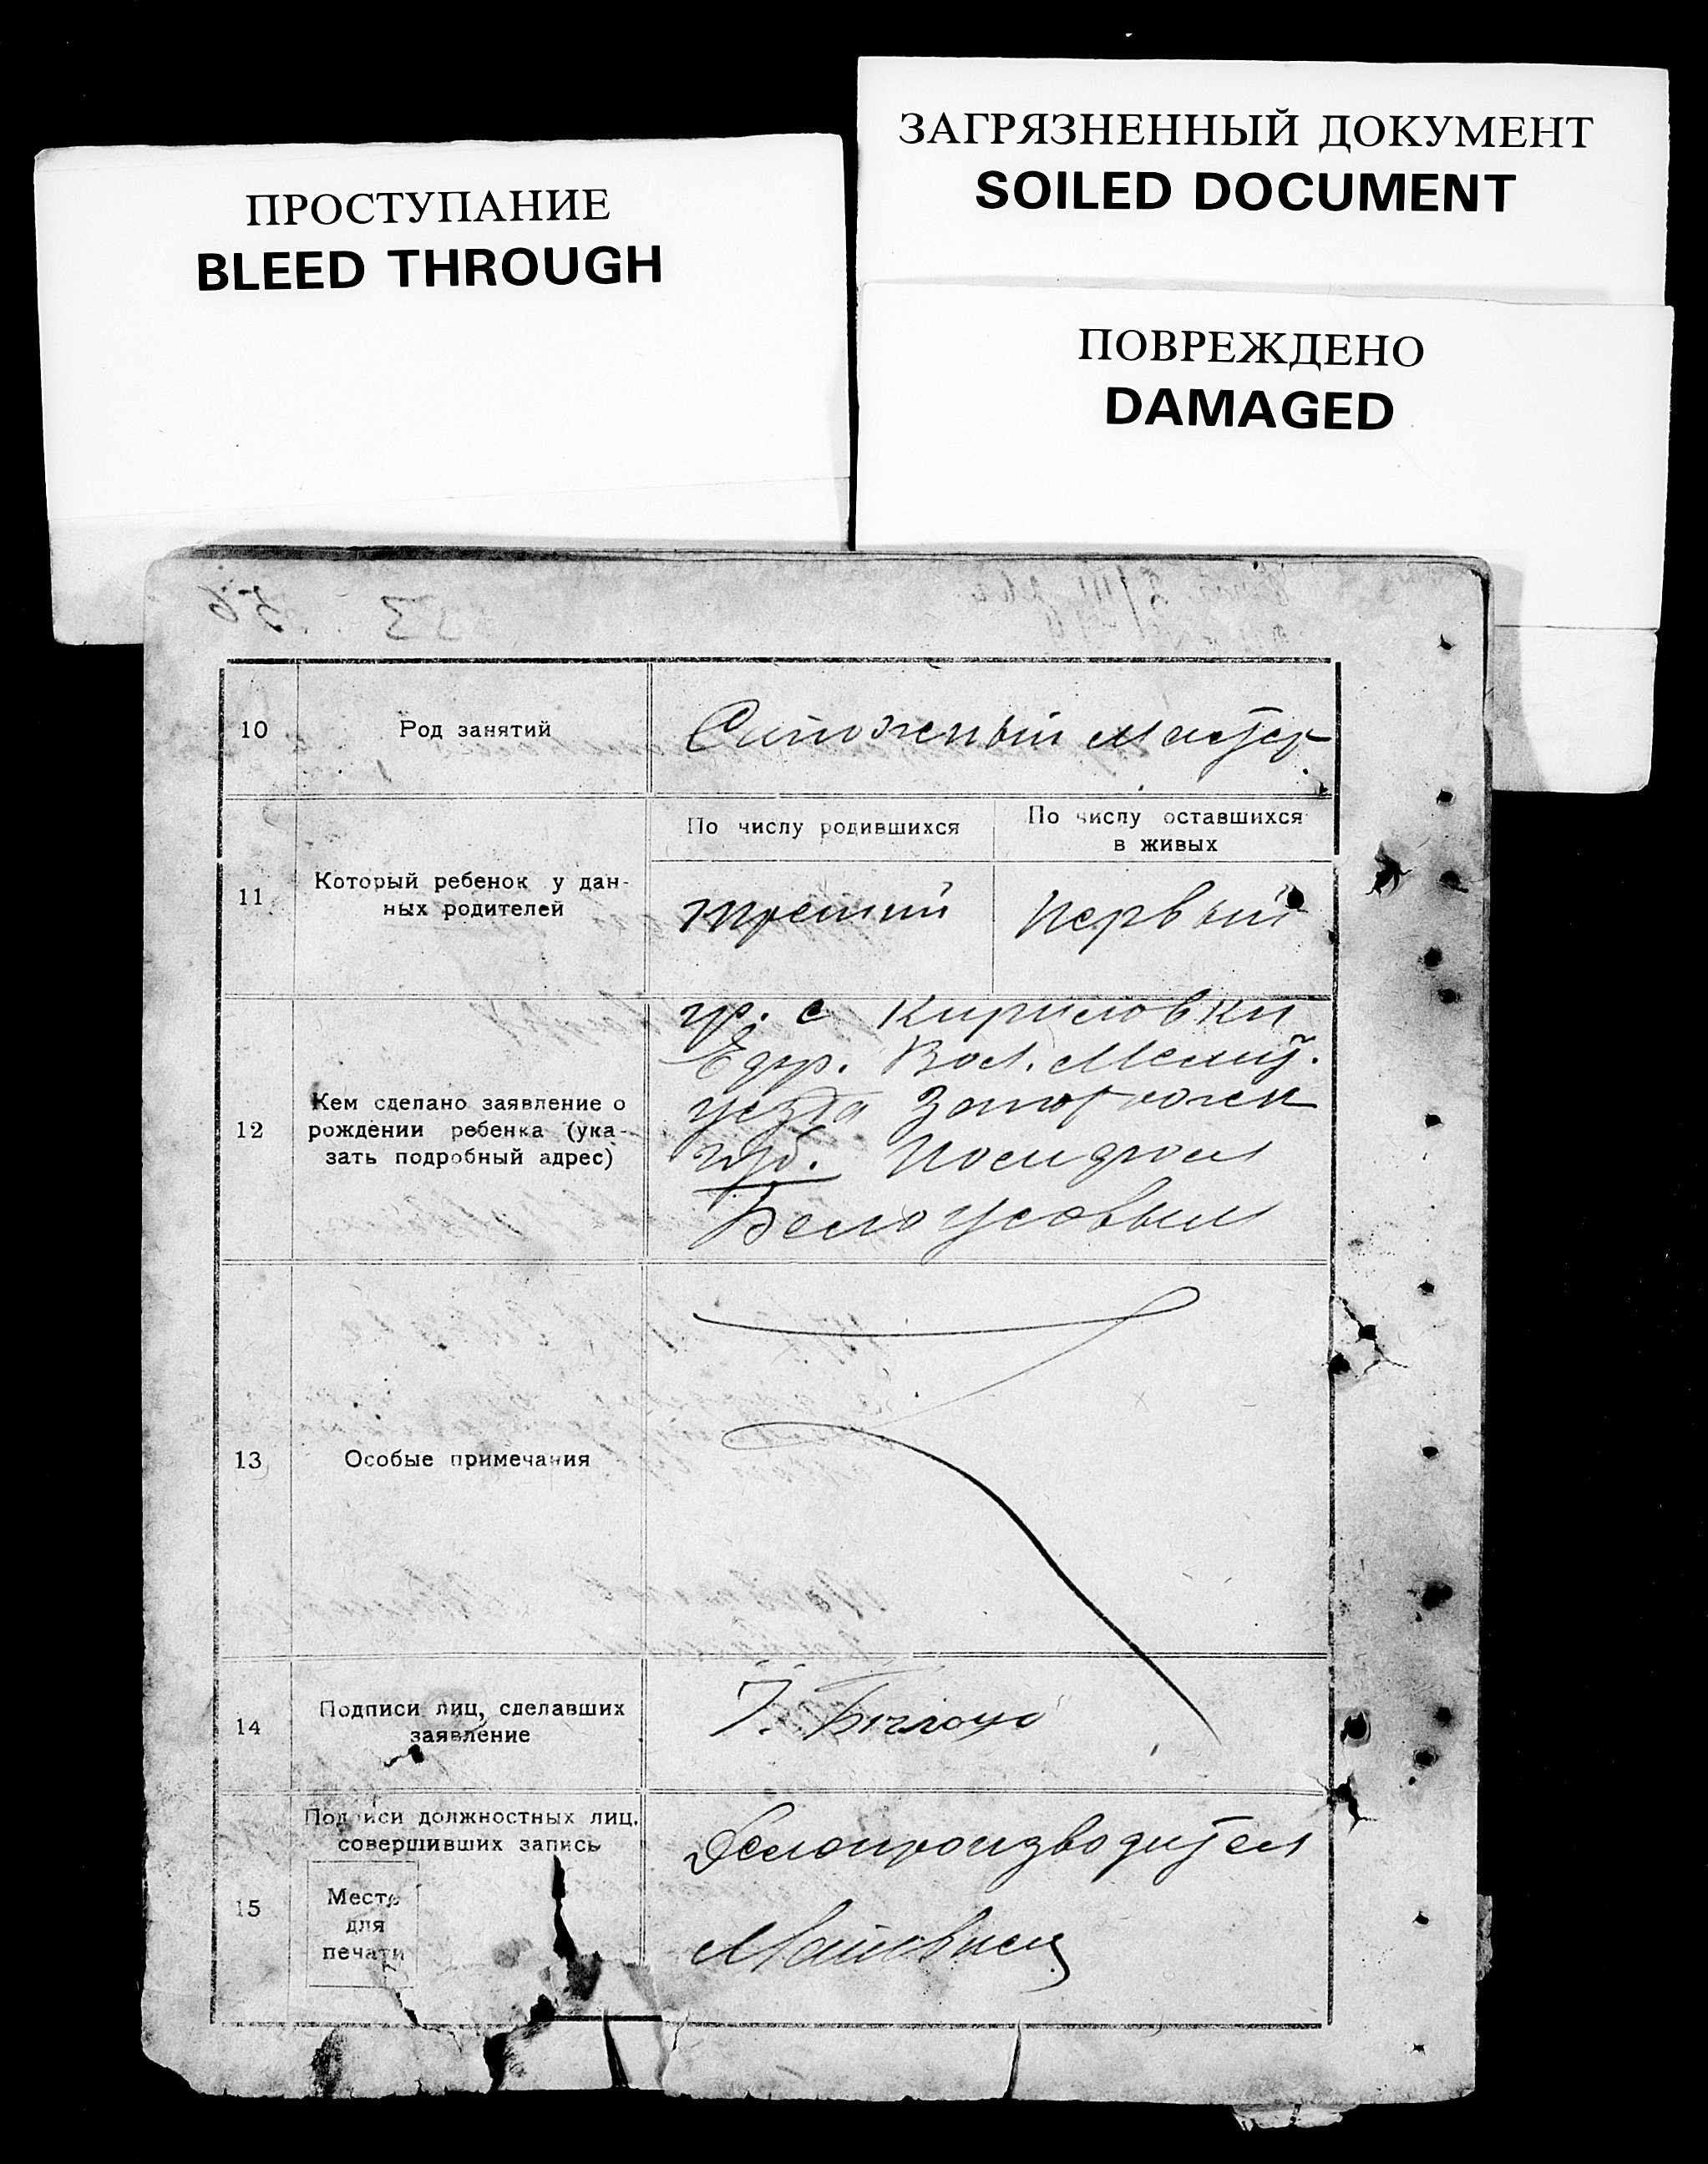 ПРОСТУПАНИЕ
BLEED THROUGH
ЗАГРЯЗНЕННЫЙ ДОКУМЕНТ
SOILED DOCUMENT
ПОВРЕЖДЕНО
DAMAGED
10
Род занятий
Сапожный мастер
11
Который ребенок у дан-
ных родителей
По числу родившихся
третий
По числу оставшихся
в живых
первый
12
Кем сделано заявление о
рождении ребенка (ука-
зать подробный адрес)
гр. с Кириловки
Вол. Мелит.
уезда
губ.
Белоусовым
13
Особые примечания
14
Подписи лиц, сделавших
заявление
15
Подписи должностных лиц,
совершивших запись
Место
для
печати
Делопроизводител